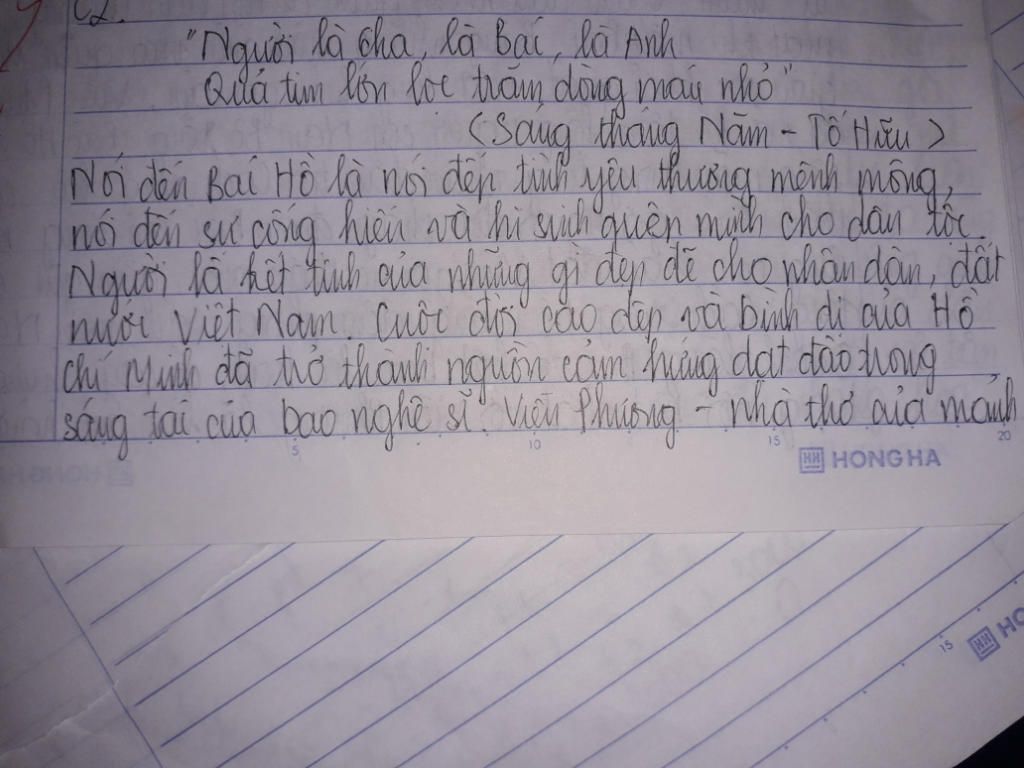 C2.
"Người là cha, là Bác, là Anh
Quả tim lớn lọc trăm dòng máu nhỏ"
(Sáng tháng Năm - Tố Hữu)
Nói đến Bác Hồ là nói đến tình yêu thương mênh mông,
nói đến sự cống hiến và hi sinh quên mình cho dân tộc.
Người là kết tinh của những gì đẹp đẽ cho nhân dân, đất
nước Việt Nam. Cuộc đời cao đẹp và bình dị của Hồ
Chí Minh đã trở thành nguồn cảm hứng dạt dào trong
sáng tác của bao nghệ sĩ. Viễn Phương - nhà thơ của mảnh
5 10 15 20
HONG HA
15 HO